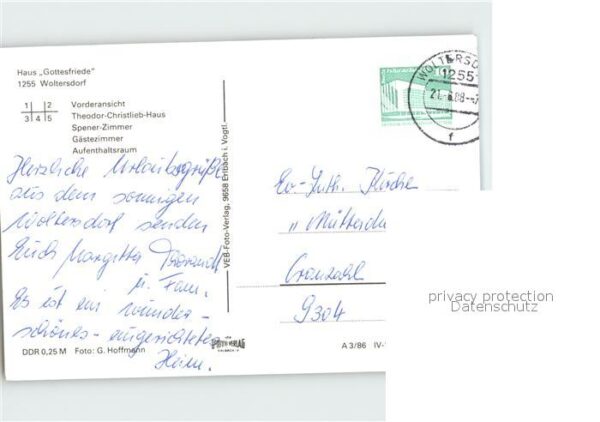 Haus „Gottesfriede"
1255 Woltersdorf
1 2
3 4 5
Vorderansicht
Theodor-Christlieb-Haus
Spener-Zimmer
Gästezimmer
Aufenthaltsraum
Herzliche Urlaubsgrüße
aus dem sonnigen
Woltersdorf senden
Euch Margitta
u. Fam.
Es ist ein wunder-
schönes - eingerichtetes
Heim.
DDR 0,25 M Foto: G. Hoffmann
VEB-Foto-Verlag, 9658 Erlbach i. Vogtl.
FOTO VERLAG
A 3/86 IV-
WOLTERSD
1255
f
10
Ev-luth. Kirche
Cranzahl
9304
privacy protection
Datenschutz